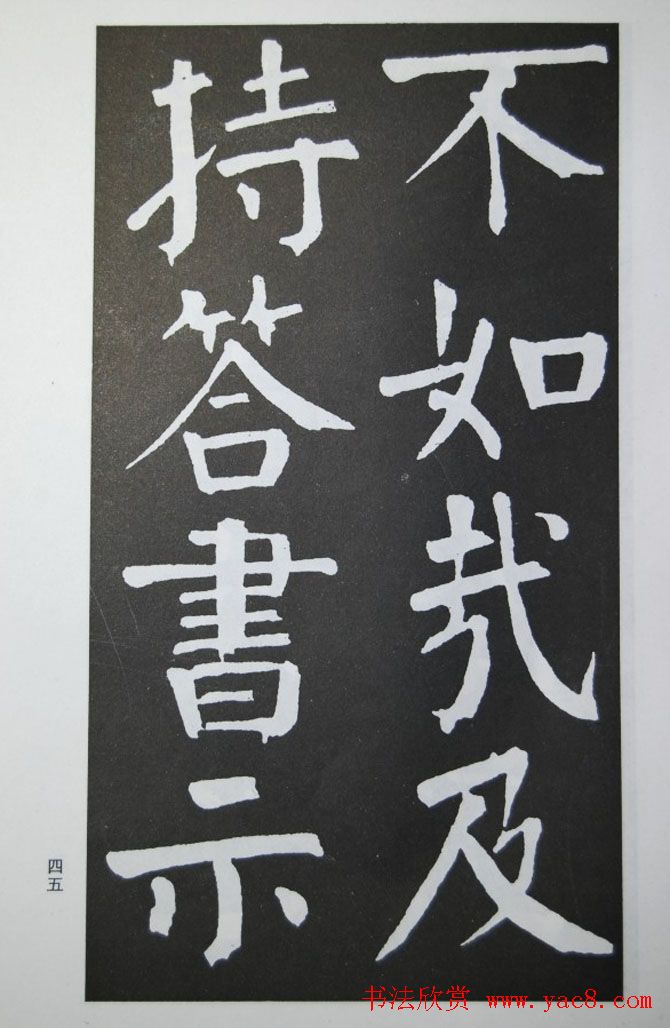 不如㢤及
持答書示
四五
书法欣赏 www.yac8.com